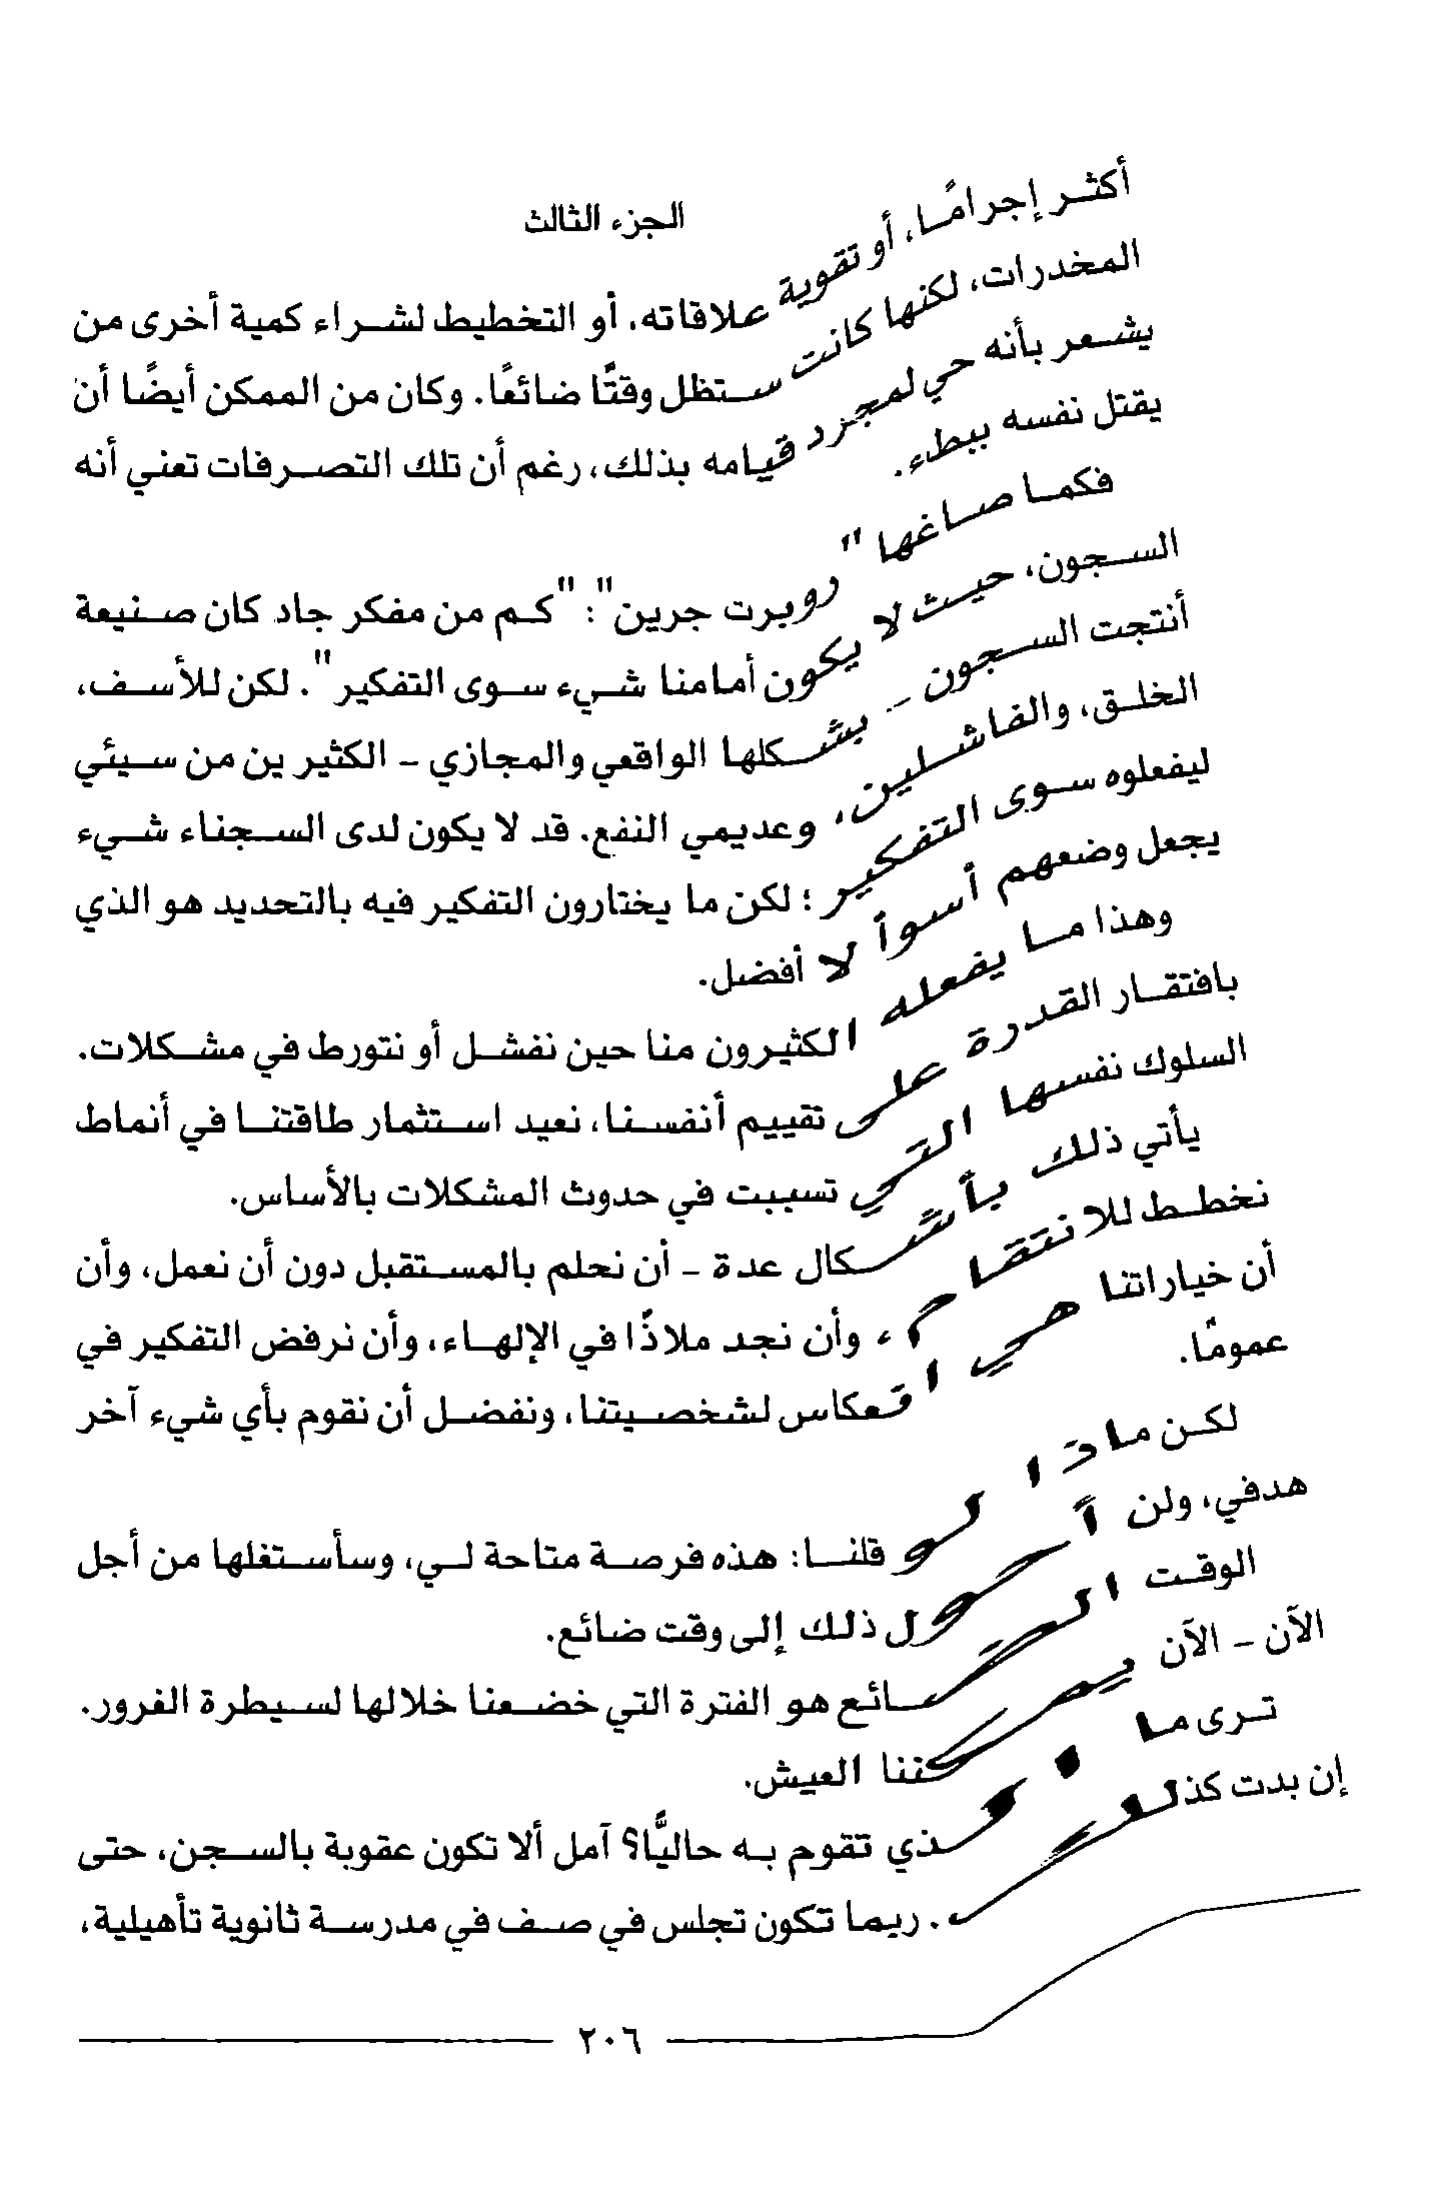 الجزء الثالث
أكثر إجرامًا، أو تقوية علاقاته، أو التخطيط لشراء كمية أخرى من
المخدرات، لكنها كانت ستظل وقتًا ضائعًا. وكان من الممكن أيضًا أن
يشعر بأنه حي لمجرد قيامه بذلك، رغم أن تلك التصرفات تعني أنه
يقتل نفسه ببطء.
فكما صاغها "روبرت جرين": "كم من مفكر جاد كان صنيعة
السجون، حيث لا يكون أمامنا شيء سوى التفكير". لكن للأسف،
أنتجت السجون – بشكلها الواقعي والمجازي – الكثيرين من سيئي
الخلق، والفاشلين، وعديمي النفع. قد لا يكون لدى السجناء شيء
ليفعلوه سوى التفكير؛ لكن ما يختارون التفكير فيه بالتحديد هو الذي
يجعل وضعهم أسوأ لا أفضل.
وهذا ما يفعله الكثيرون منا حين نفشل أو نتورط في مشكلات.
بافتقار القدرة على تقييم أنفسنا، نعيد استثمار طاقتنا في أنماط
السلوك نفسها التي تسببت في حدوث المشكلات بالأساس.
يأتي ذلك بأشكال عدة – أن نحلم بالمستقبل دون أن نعمل، وأن
نخطط للانتقام، وأن نجد ملاذًا في الإلهاء، وأن نرفض التفكير في
أن خياراتنا هي انعكاس لشخصيتنا، ونفضل أن نقوم بأي شيء آخر
عمومًا.
لكن ماذا لو قلنا: هذه فرصة متاحة لي، وسأستغلها من أجل
هدفي، ولن أحول ذلك إلى وقت ضائع.
الوقت الضائع هو الفترة التي خضعنا خلالها لسيطرة الغرور.
الآن – الآن يمكننا العيش.
ترى ما الذي تقوم به حاليًّا؟ آمل ألا تكون عقوبة بالسجن، حتى
إن بدت كذلك. ربما تكون تجلس في صف في مدرسة ثانوية تأهيلية،
٢٠٦